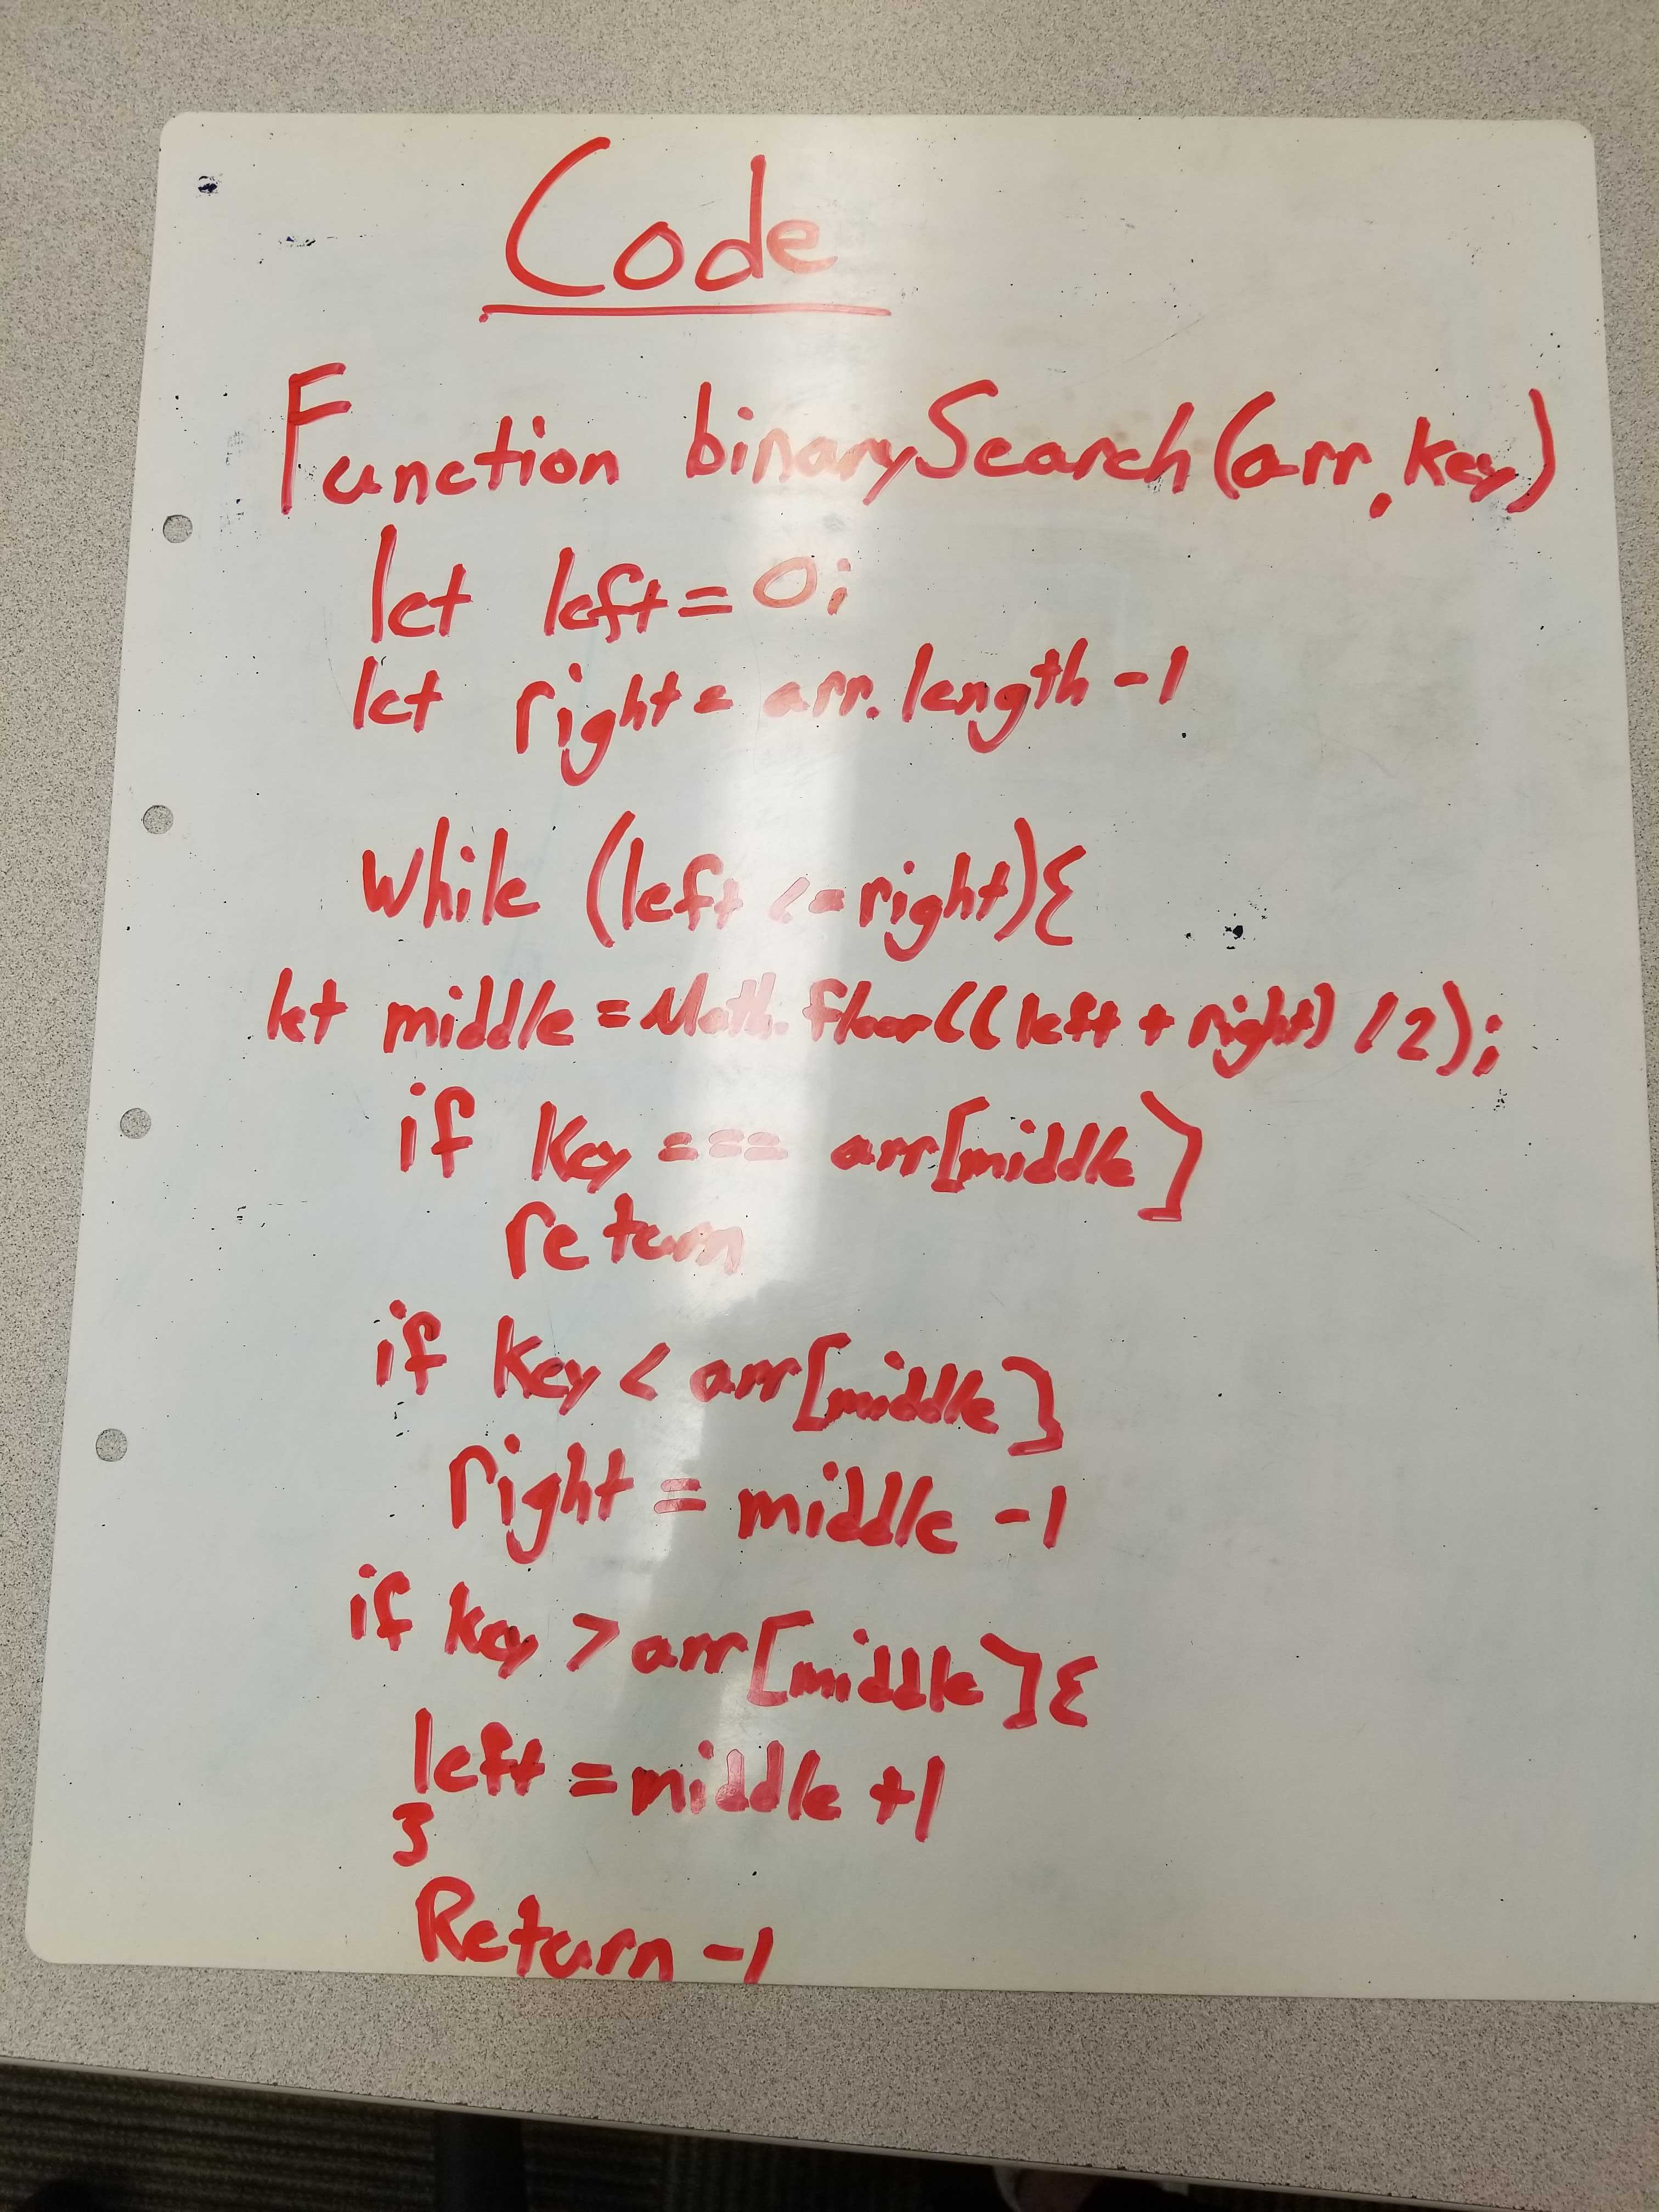 Code
Function binarySearch(arr, key)
let left = 0;
let right = arr.length -1
while (left <= right){
let middle = Math.floor((left + right) / 2);
if key === arr[middle]
return
if key < arr[middle]
right = middle -1
if key > arr[middle]{
left = middle +1
}
Return -1